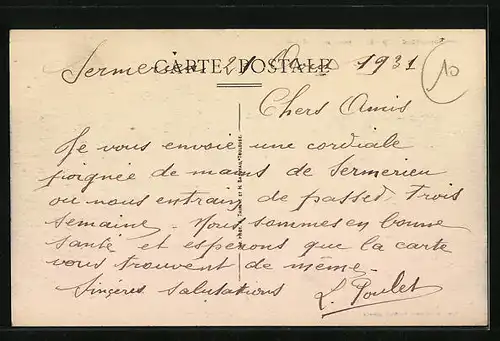 Sermerieu 21 1931
CARTE POSTALE
10
Chers Amis
Je vous envoie une cordiale
poignée de mains de Sermerieu
ou nous entrain de passer trois
semaine - Nous sommes en bonne
santé et esperons que la carte
vous trouvent de même -
Sinçères salutations L. Poulet